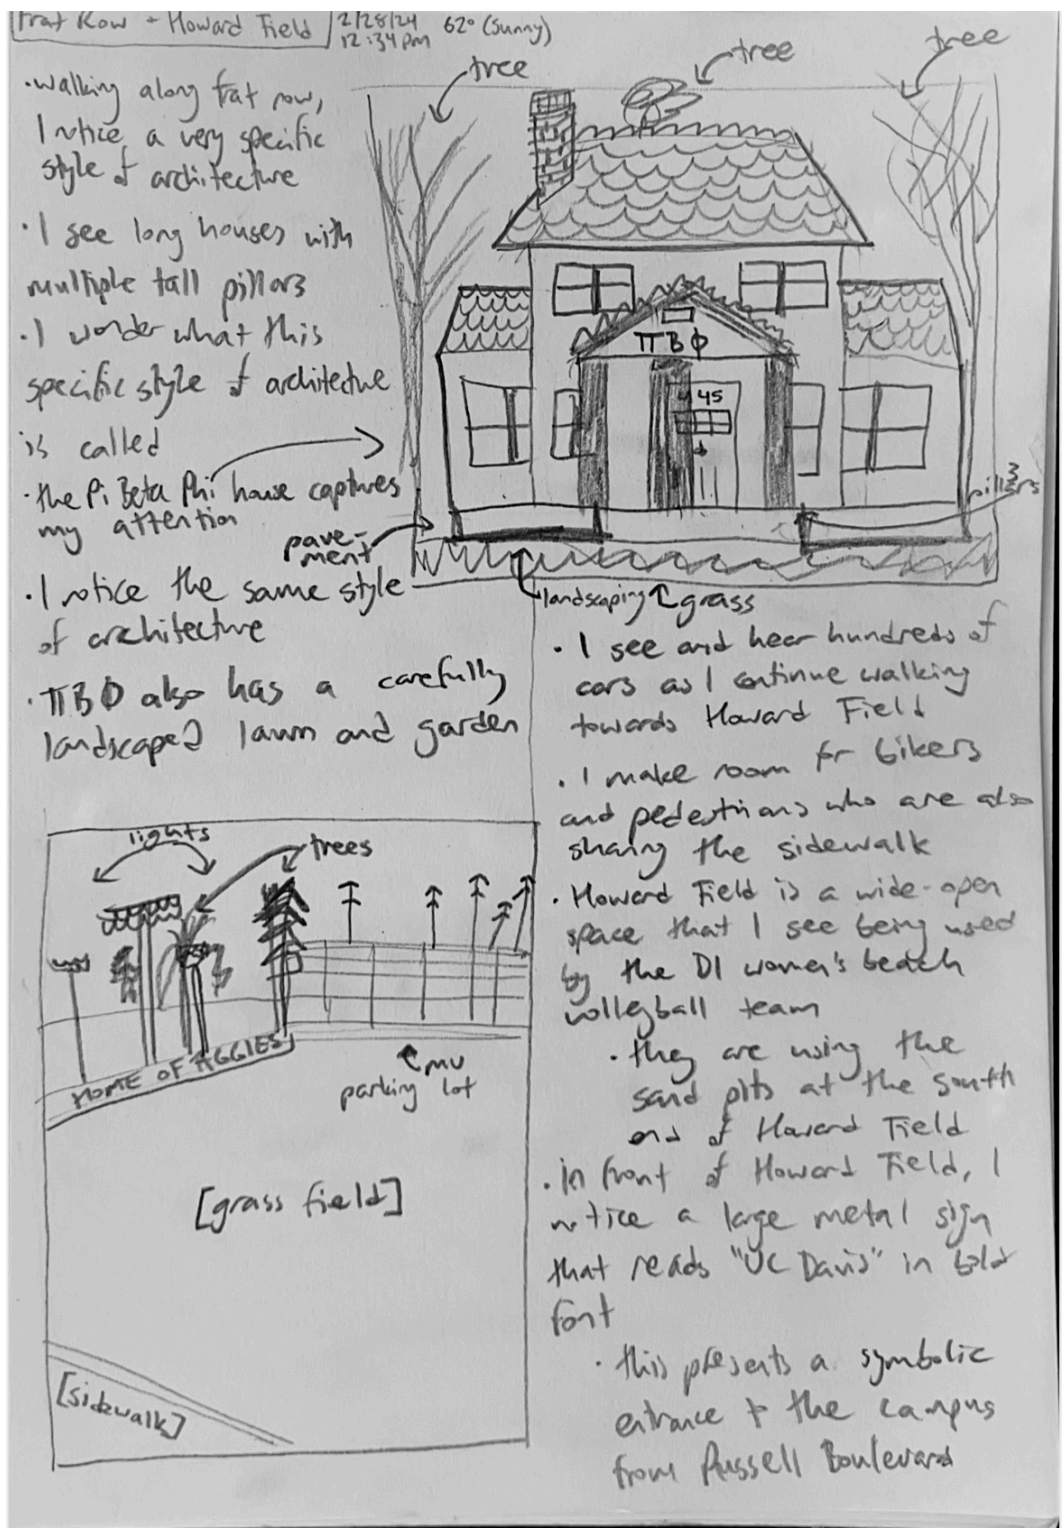 Frat Row + Howard Field
2/28/24
12:34pm
62° (sunny)
• walking along frat row,
I notice a very specific
style of architecture
• I see long houses with
multiple tall pillars
• I wonder what this
specific style of architecture
is called
• the Pi Beta Phi house captures
my attention
• I notice the same style
of architecture
• ΠΒΦ also has a carefully
landscaped lawn and garden
tree
tree
tree
ΠΒΦ
45
pillars
pave-
ment
landscaping
grass
• I see and hear hundreds of
cars as I continue walking
towards Howard Field
• I make room for bikers
and pedestrians who are also
sharing the sidewalk
• Howard Field is a wide-open
space that I see being used
by the D1 women's beach
volleyball team
• they are using the
sand pits at the south
end of Howard Field
• in front of Howard Field, I
notice a large metal sign
that reads "UC Davis" in bold
font
• this presents a symbolic
entrance to the campus
from Russell Boulevard
lights
trees
HOME OF AGGIES
MU
parking lot
[grass field]
[sidewalk]